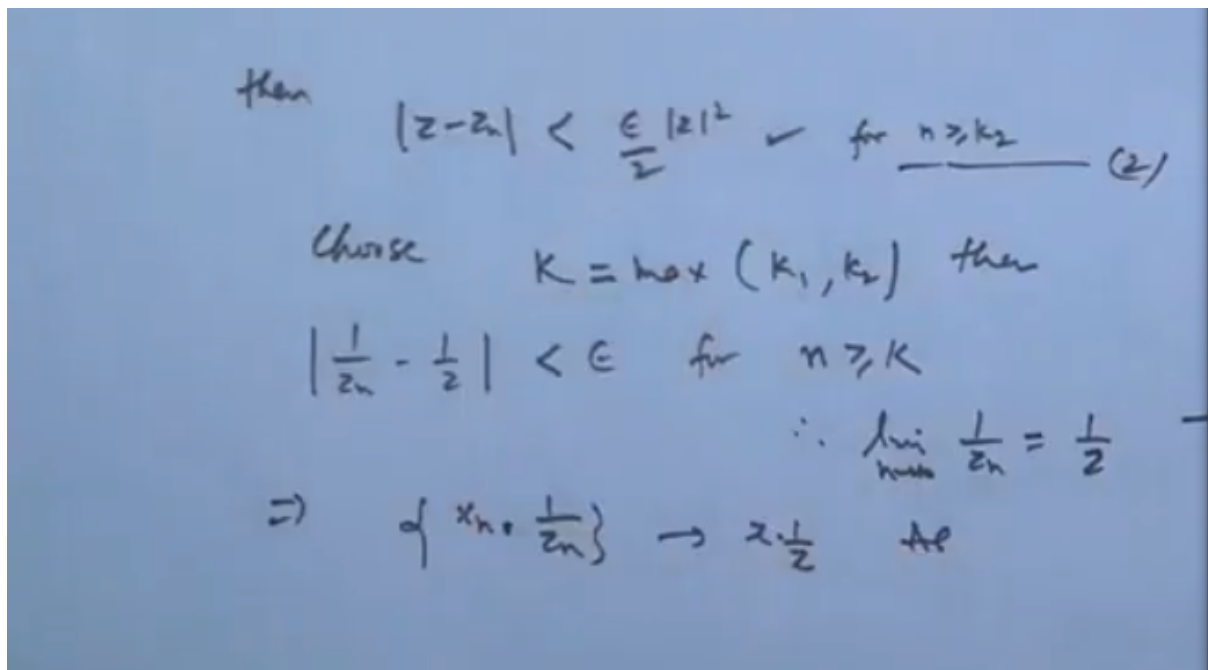 then
|z-zₙ| < ε/2 |z|² ✓ for n ≥ k₂ (2)
Choose K = max (K₁, K₂) then
|1/zₙ - 1/z| < ε for n ≥ K
∴ lim n→∞ 1/zₙ = 1/z
⇒ { xₙ · 1/zₙ } → x · 1/z As